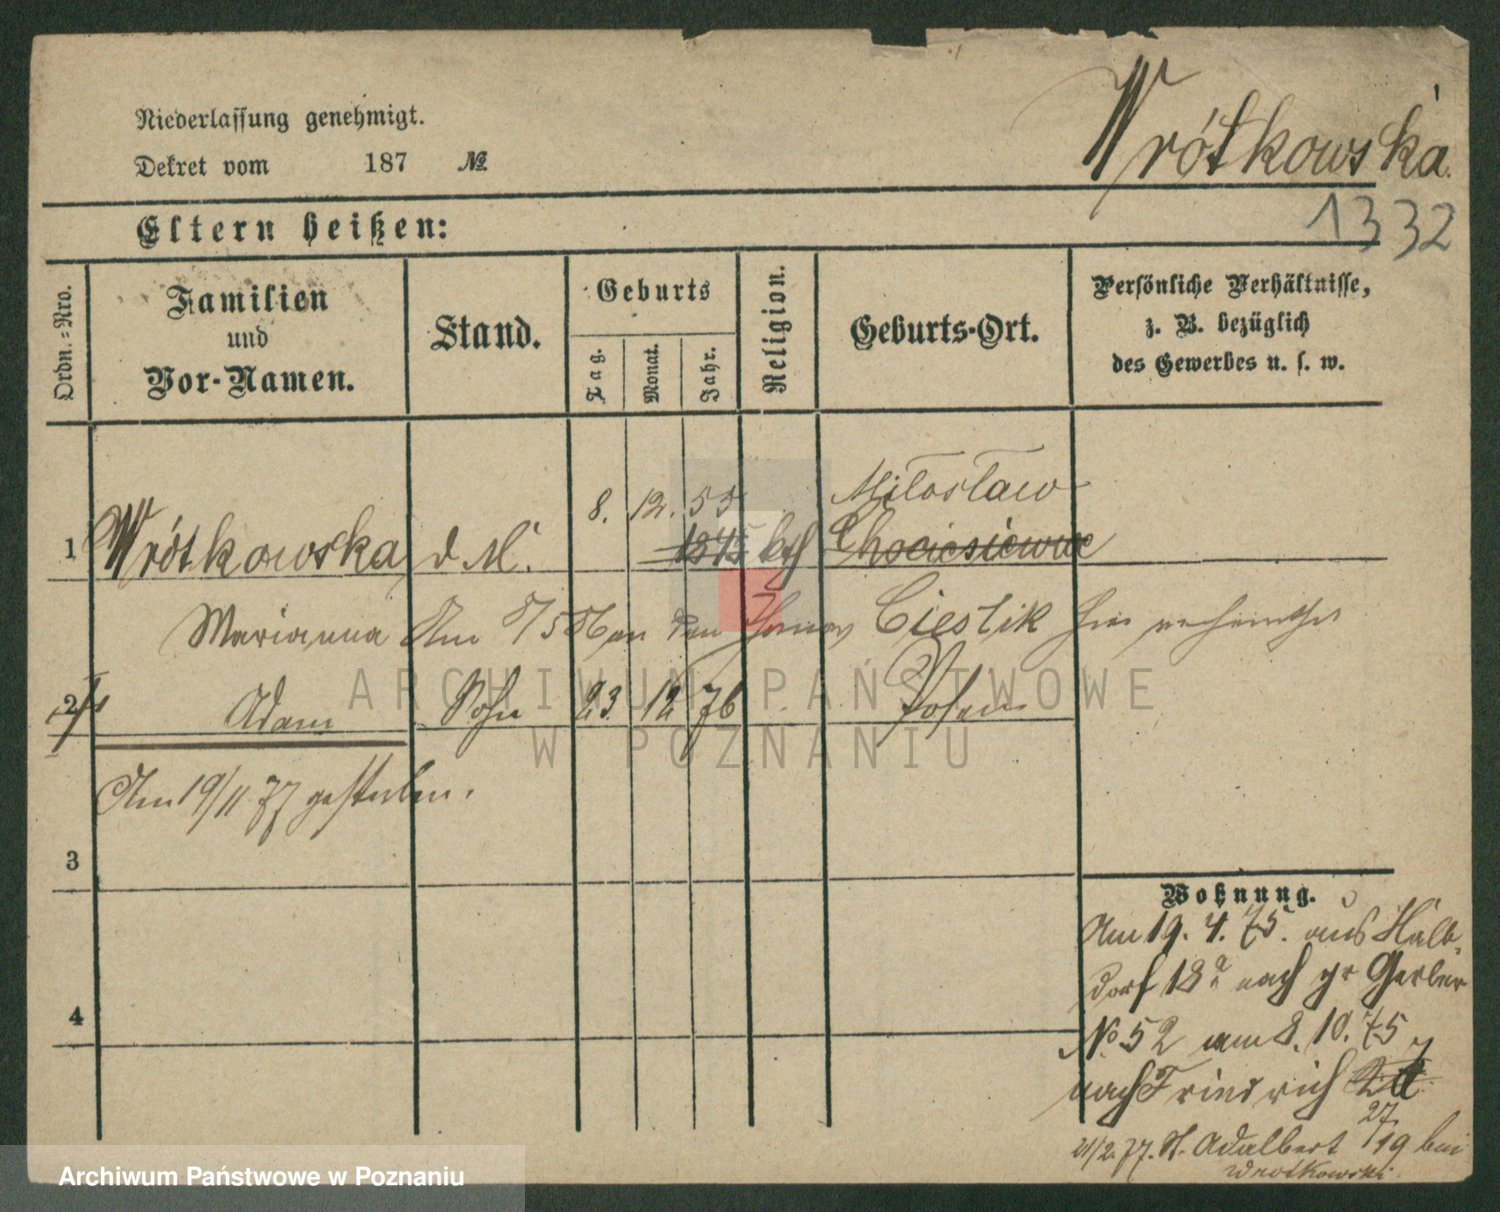 Niederlassung genehmigt.
Dekret vom 187 №
Wrótkowska
1332
Eltern heißen:
Ordn.-Nro.
Familien
und
Vor-Namen.
Stand.
Geburts
Tag.
Monat.
Jahr.
Religion.
Geburts-Ort.
Persönliche Verhältnisse,
z. B. bezüglich
des Gewerbes u. s. w.
Miłosław
8. 12. 55
1 Wrótkowska d M. 1845 kth Chociesiewnie
Marianna Am den Thomas Cieslik hier verheirathet
2 Adam Sohn 23 12 76 Posen
Am 19/11 77 gestorben.
3
4
Wohnung.
Am 19. 4. 75. aus Halb-
dorf 18a nach gr Gerber
No 52 am 8. 10. 75
nach Friedrich
27
21/2. 77. St. Adalbert 19 bei
Wrotkowski
ARCHIWUM PAŃSTWOWE
W POZNANIU
Archiwum Państwowe w Poznaniu